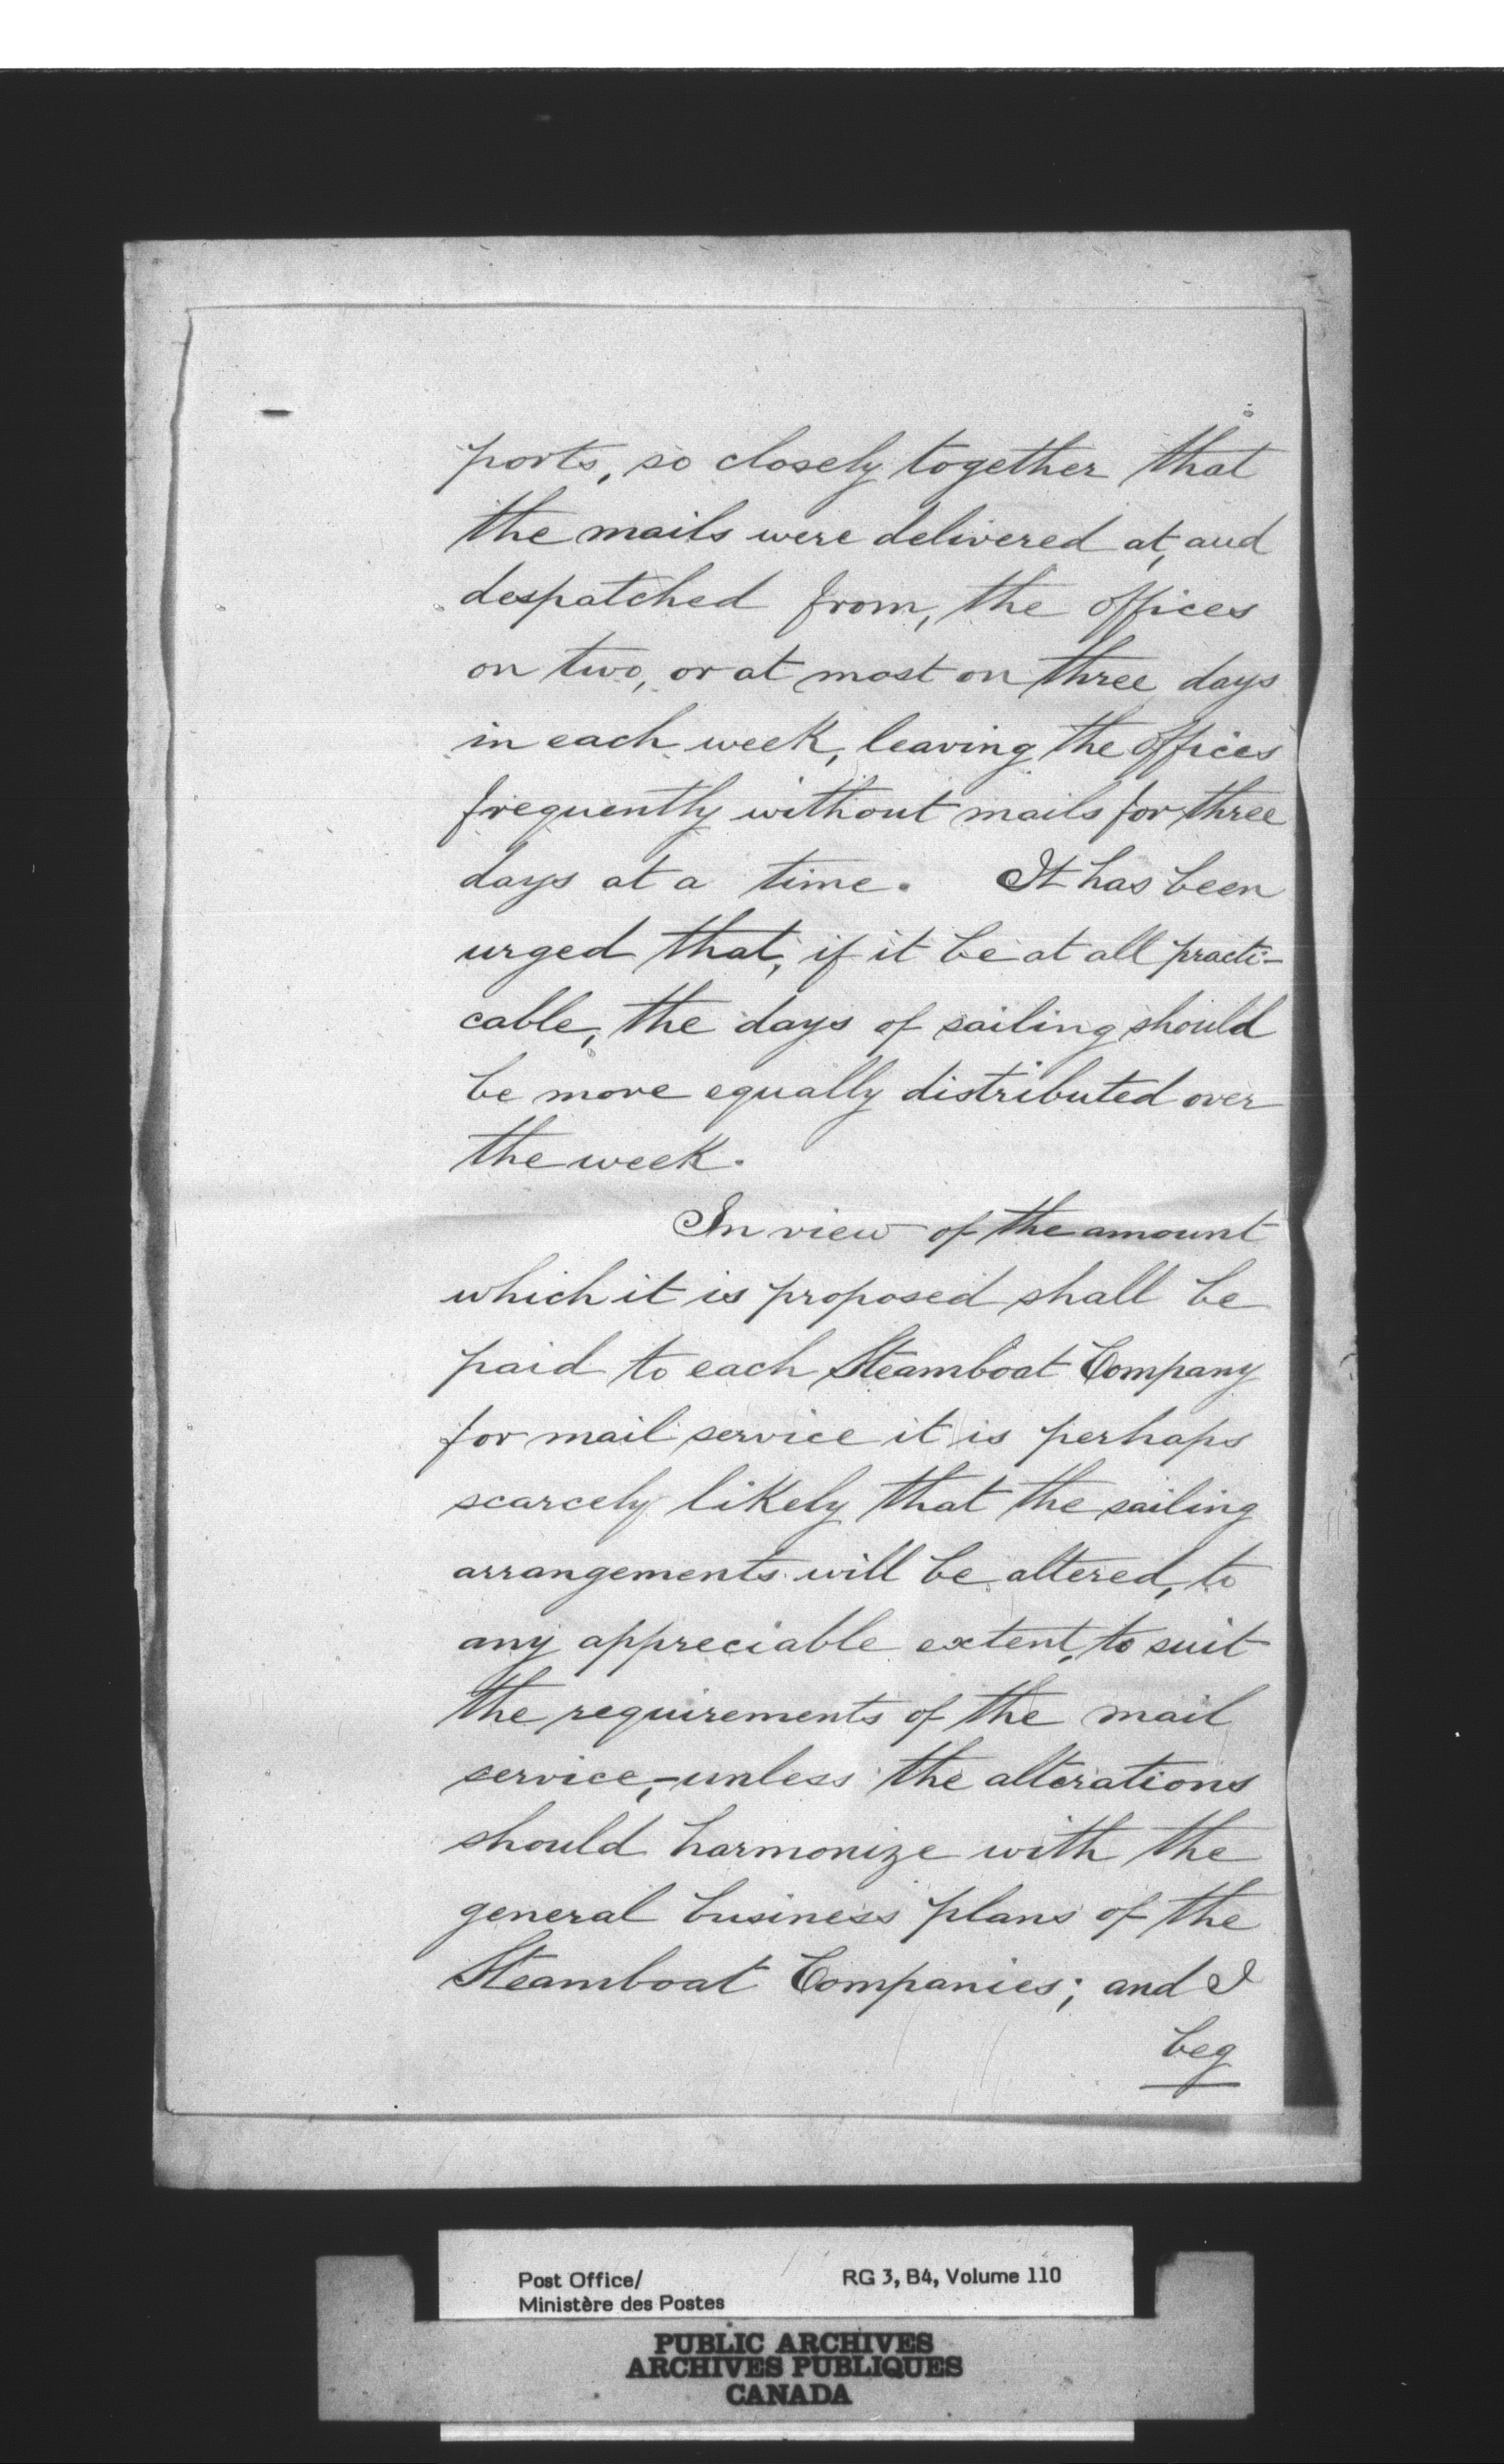 ports, so closely together that
the mails were delivered at, and
despatched from, the offices
on two, or at most on three days
in each week, leaving the offices
frequently without mails for three
days at a time. It has been
urged that, if it be at all practi-
cable, the days of sailing should
be more equally distributed over
the week.
In view of the amount
which it is proposed shall be
paid to each Steamboat Company
for mail service it is perhaps
scarcely likely that the sailing
arrangements will be altered, to
any appreciable extent, to suit
the requirements of the mail
service,-unless the alterations
should harmonize with the
general business plans of the
Steamboat Companies; and I
beg
Post Office/ RG 3, B4, Volume 110
Ministère des Postes
PUBLIC ARCHIVES
ARCHIVES PUBLIQUES
CANADA